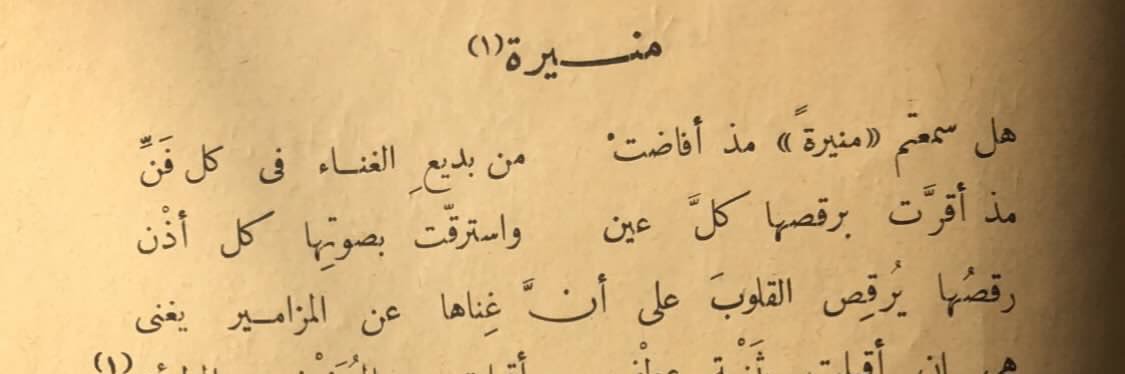 منيرة (١)
هل سمعتم «منيرةً» مذ أفاضتْ من بديعِ الغناء فى كل فَنِّ
مذ أقرَّت برقصها كلَّ عين واسترقّت بصوتِها كل أذْن
رقصُها يُرقِص القلوبَ على أنَّ غِناها عن المزامير يغنى
هى إن أقبلت (١)